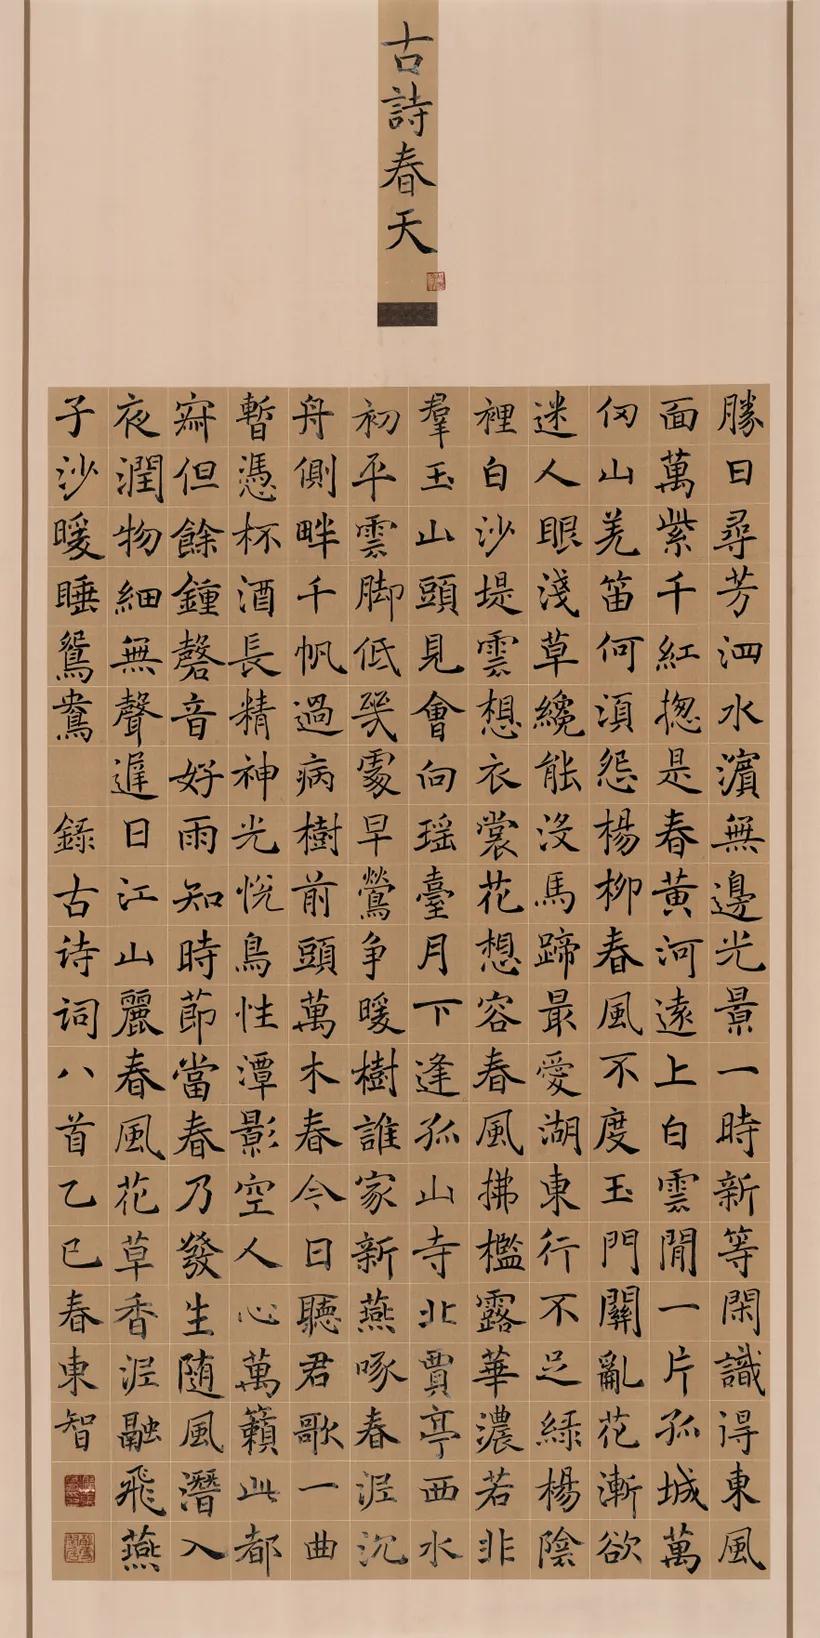 古詩春天
勝日尋芳泗水濱無邊光景一時新等閑識得東風
面萬紫千紅揔是春黃河遠上白雲間一片孤城萬
仞山羌笛何須怨楊柳春風不度玉門關亂花漸欲
迷人眼淺草纔能沒馬蹄最愛湖東行不足綠楊陰
裡白沙堤雲想衣裳花想容春風拂檻露華濃若非
羣玉山頭見會向瑶臺月下逢孤山寺北賈亭西水
初平雲脚低幾處早鶯争暖樹誰家新燕啄春泥沉
舟側畔千帆過病樹前頭萬木春今日聽君歌一曲
暫憑杯酒長精神光悅鳥性潭影空人心萬籟此都
寂但餘鍾磬音好雨知時節當春乃發生随風潛入
夜潤物細無聲遲日江山麗春風花草香泥融飛燕
子沙暖睡鴛鴦 錄古诗词八首乙巳春東智